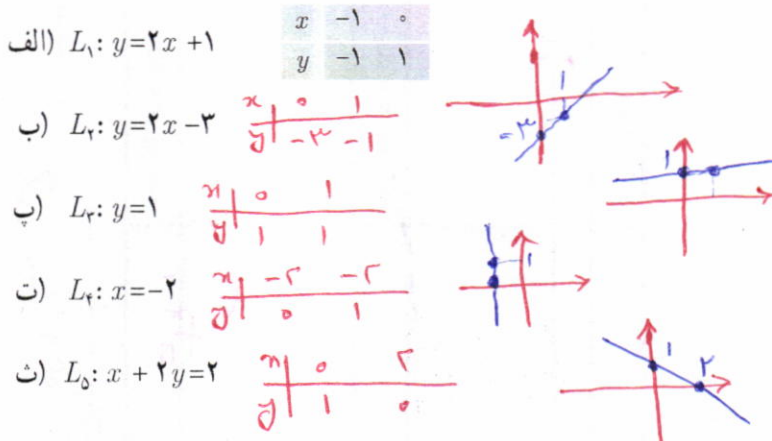 الف) L₁: y=۲x +۱
x -۱ ۰
y -۱ ۱
ب) L₂: y=۲x -۳
x ۰ ۱
y -۳ -۱
۱
-۳
پ) L₃: y=۱
x ۰ ۱
y ۱ ۱
۱
ت) L₄: x=-۲
x -۲ -۲
y ۰ ۱
۱
ث) L₅: x + ۲y=۲
x ۰ ۲
y ۱ ۰
۱
۲